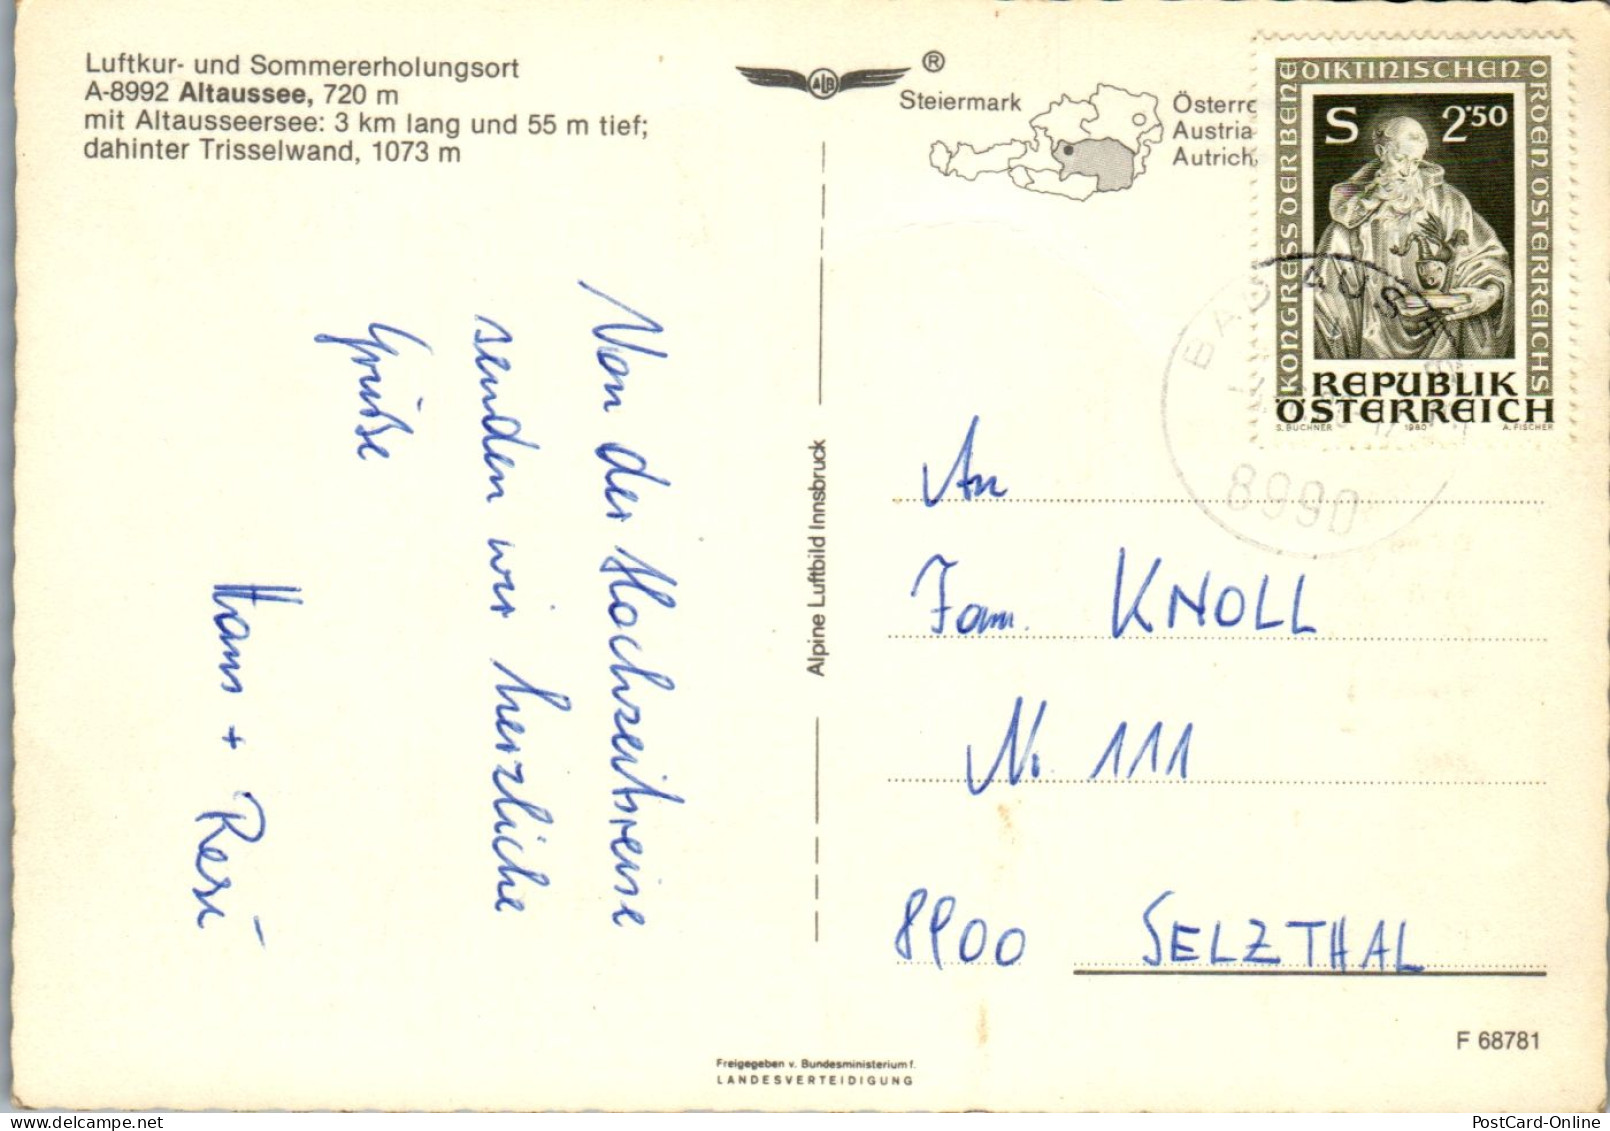 Luftkur- und Sommererholungsort
A-8992 Altaussee, 720 m
mit Altausseersee: 3 km lang und 55 m tief;
dahinter Trisselwand, 1073 m
ALB
®
Steiermark
Österre
Austria
Autrich
KONGRESS DER BENEDIKTINISCHEN ORDEN ÖSTERREICHS
S 2·50
REPUBLIK
ÖSTERREICH
S. BUCHNER 1980 A. FISCHER
BAD AUSSEE
8990
Von der Hochzeitsreise
senden wir herzliche
Grüße
Hans + Resi
Alpine Luftbild Innsbruck
An
Fam. KNOLL
Nr. 111
8900 SELZTHAL
F 68781
Freigegeben v. Bundesministerium f.
LANDESVERTEIDIGUNG
PostCard-Online